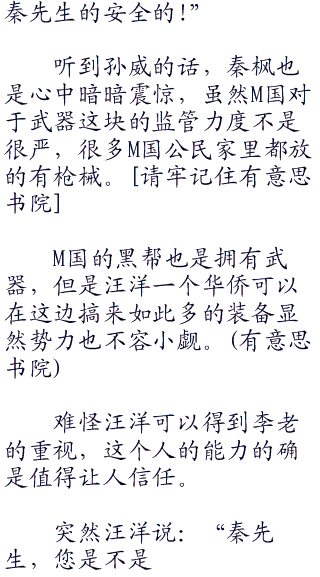 秦先生的安全的!”
听到孙威的话，秦枫也
是心中暗暗震惊，虽然M国对
于武器这块的监管力度不是
很严，很多M国公民家里都放
的有枪械。[请牢记住有意思
书院]
M国的黑帮也是拥有武
器，但是汪洋一个华侨可以
在这边搞来如此多的装备显
然势力也不容小觑。(有意思
书院)
难怪汪洋可以得到李老
的重视，这个人的能力的确
是值得让人信任。
突然汪洋说：“秦先
生，您是不是